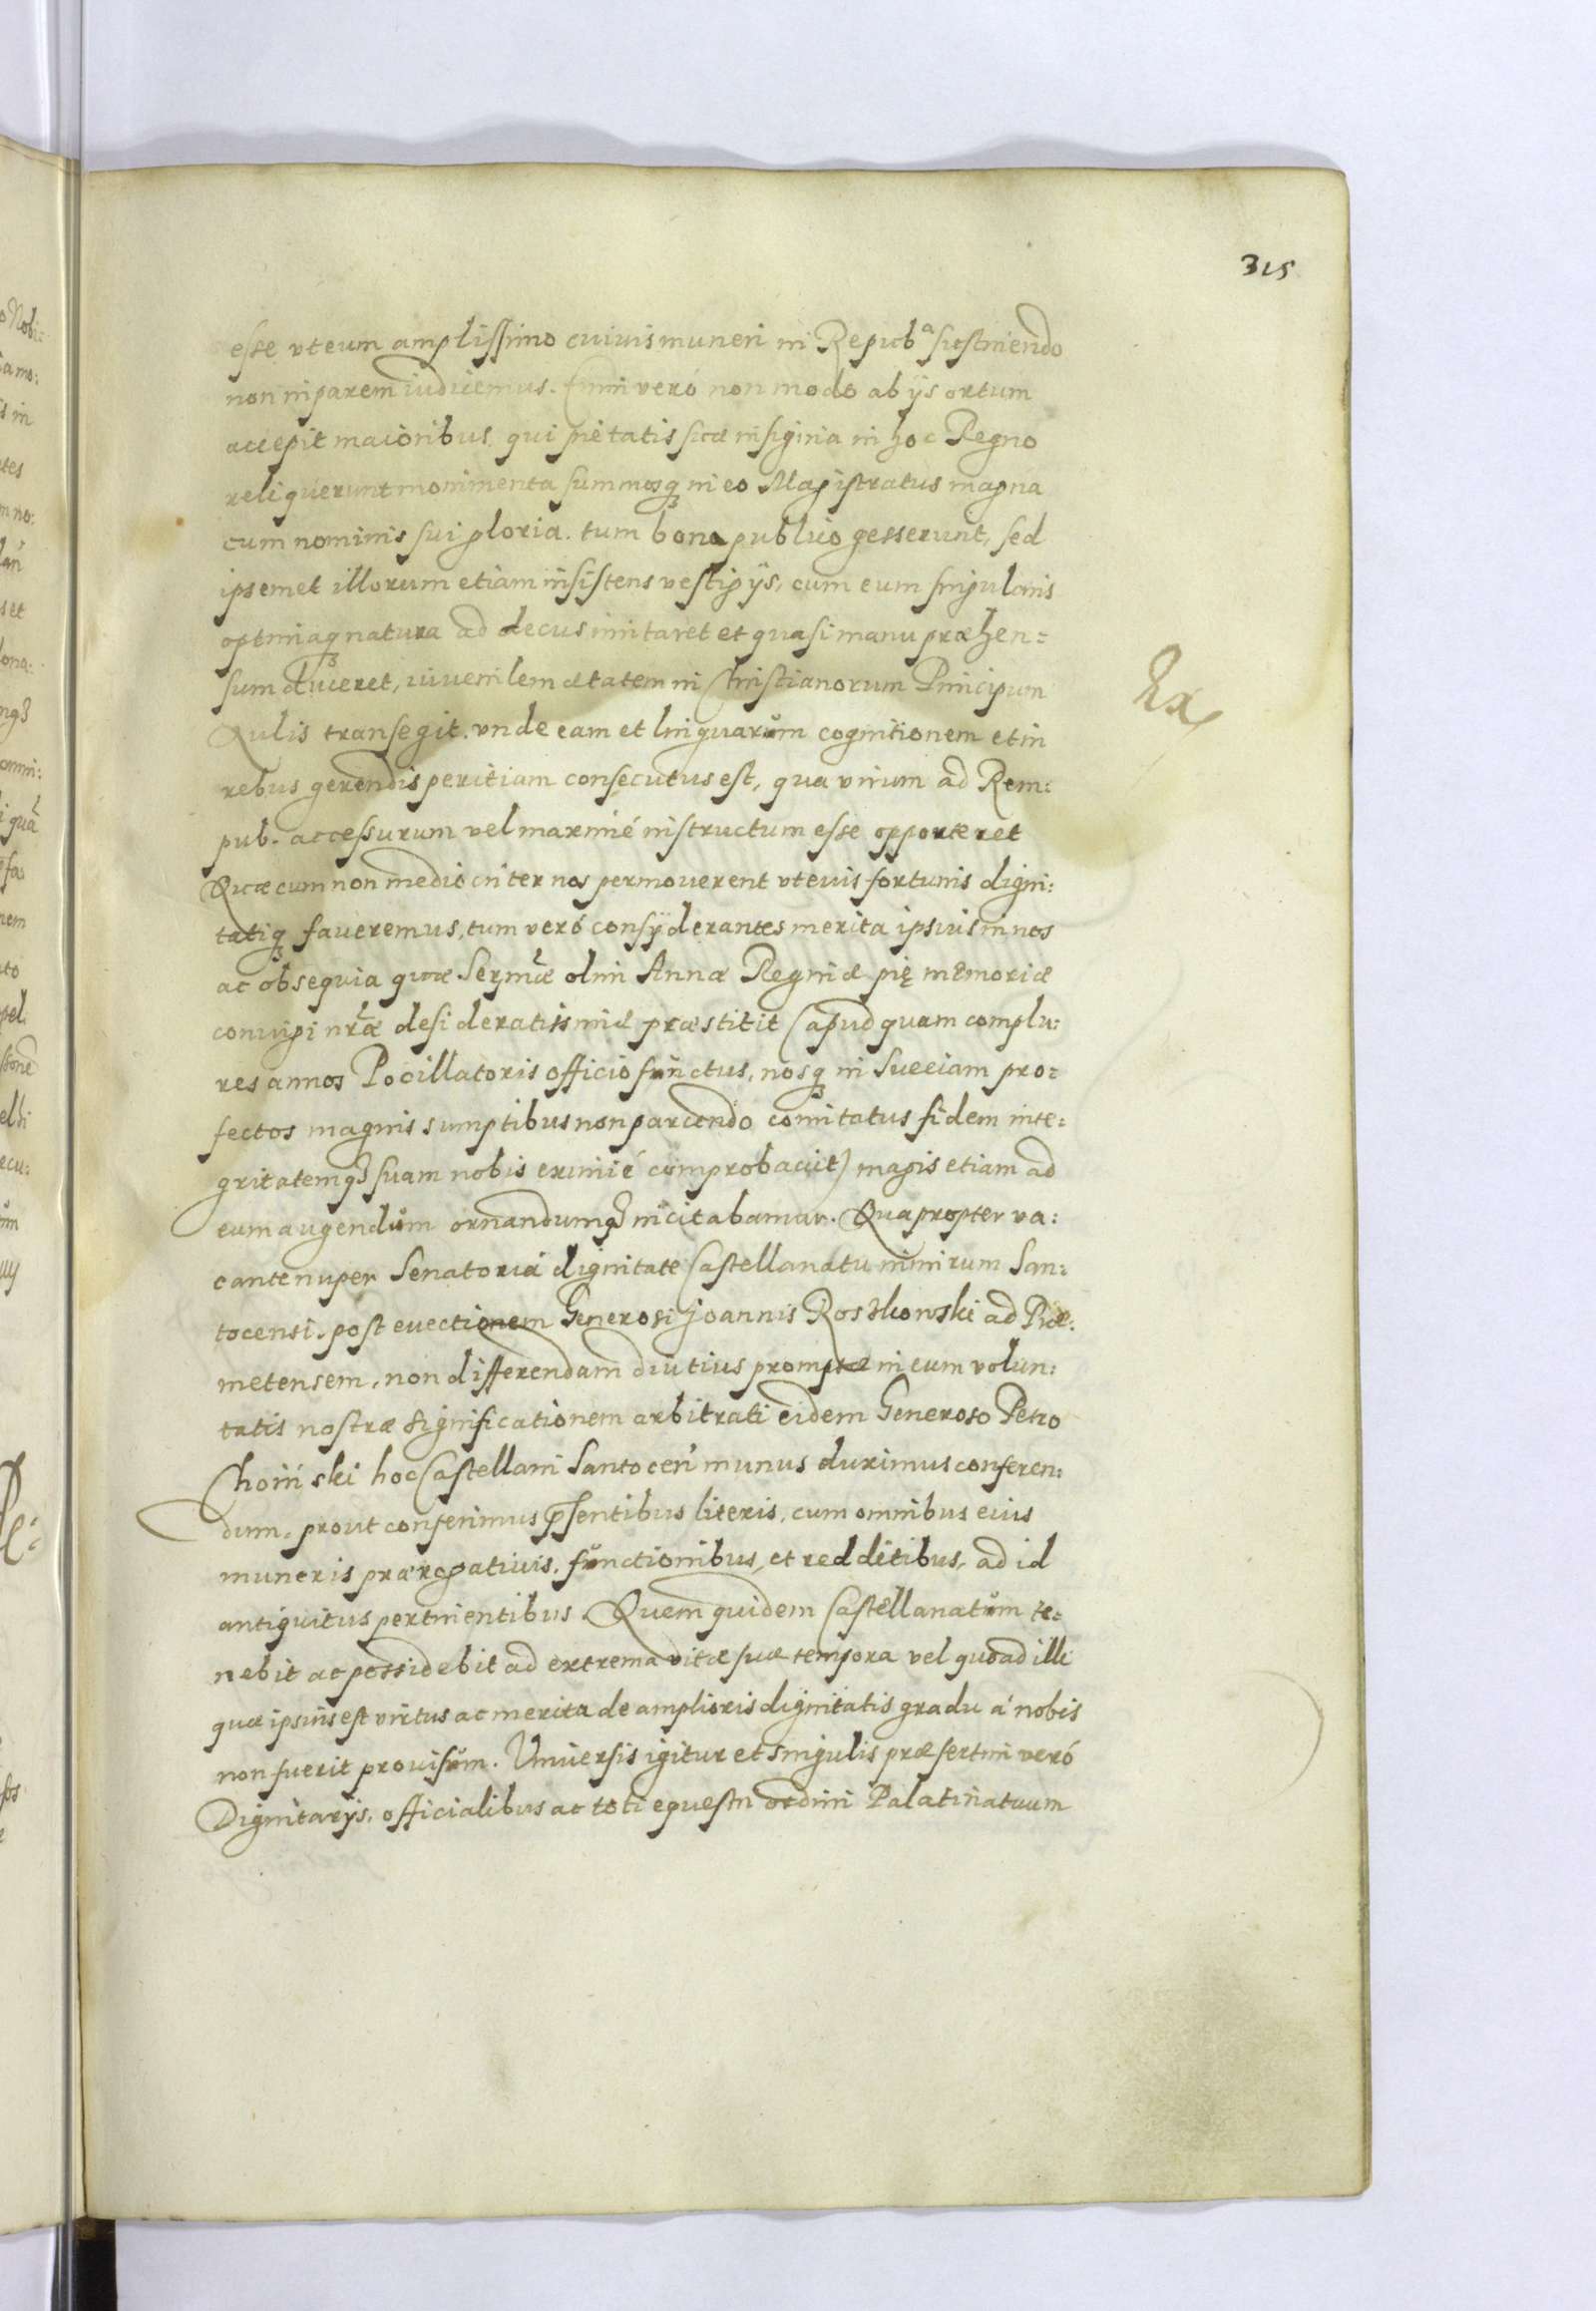 315
esse vt eum amplissimo cuiuis muneri in Repubᵃ sustinendo
non imparem iudicemus. Enim veró non modo ab ijs ortum
accepit maioribus qui pietatis suæ insignia in hoc Regno
reliquerunt monimenta summosq̃ in eo Magistratus magna
cum nominis sui gloria. tum bono publico gesserunt, sed
ipsemet illorum etiam insistens vestigijs, cum eum singularis
optimaq̃ natura ad decus inuitaret et quasi manu præhen=
sum duceret, iuuenilem ætatem in Christianorum Principum
Aulis transegit. vnde eam et linguarům cognitionem et in
rebus gerendis peritiam consecutus est, qua virum ad Rem:
pub. accessurum vel maximé instructum esse opporteret
Quæ cum non mediocriter nos permouerent vt euis fortunis digni:
tatiq̃ faueremus, tum veró consÿderantes merita ipsuis in nos
ac obsequia quæ Sermæ̃ olim Annæ Reginæ pię memoriæ
coniugi nræ̃ desideratissimæ præstitit (apud quam complu:
res annos Pocillatoris officio functus, nosq̃ in Sueciam pro=
fectos magnis sumptibus non parcendo comitatus fidem inte:
gritatemq̃ suam nobis eximié comprobauit) magis etiam ad
eum augendům ornandumq̃ incitabamur. Quapropter va:
cante nuper Senatoria dignitate Castellanatu nimirum San:
tocensi. post euectionem Generosi Joannis Roszkowski ad Præ:
metensem, non differendam diutius promptæ in eum volun:
tatis nostræ significationem arbitrati eidem Generoso Petro
Choiński hoc Castellani Santoceń munus duximus conferen:
dum. prout conferimus p̃sentibus literis. cum omnibus euis
muneris prærogatiuis. fůnctionibus, et redditibus, ad id
antiquitus pertinentibus. Quem quidem Castellanatům te:
nebit ac possidebit ad extrema vitæ suæ tempora vel quoad illi
quæ ipsuis est virtus ac merita de amplioris dignitatis gradu á nobis
non fuerit prouisům. Vniuersis igitur et singulis præsertim veró
Dignitarijs. officialibus ac toti equestri ordini Palatinatuum